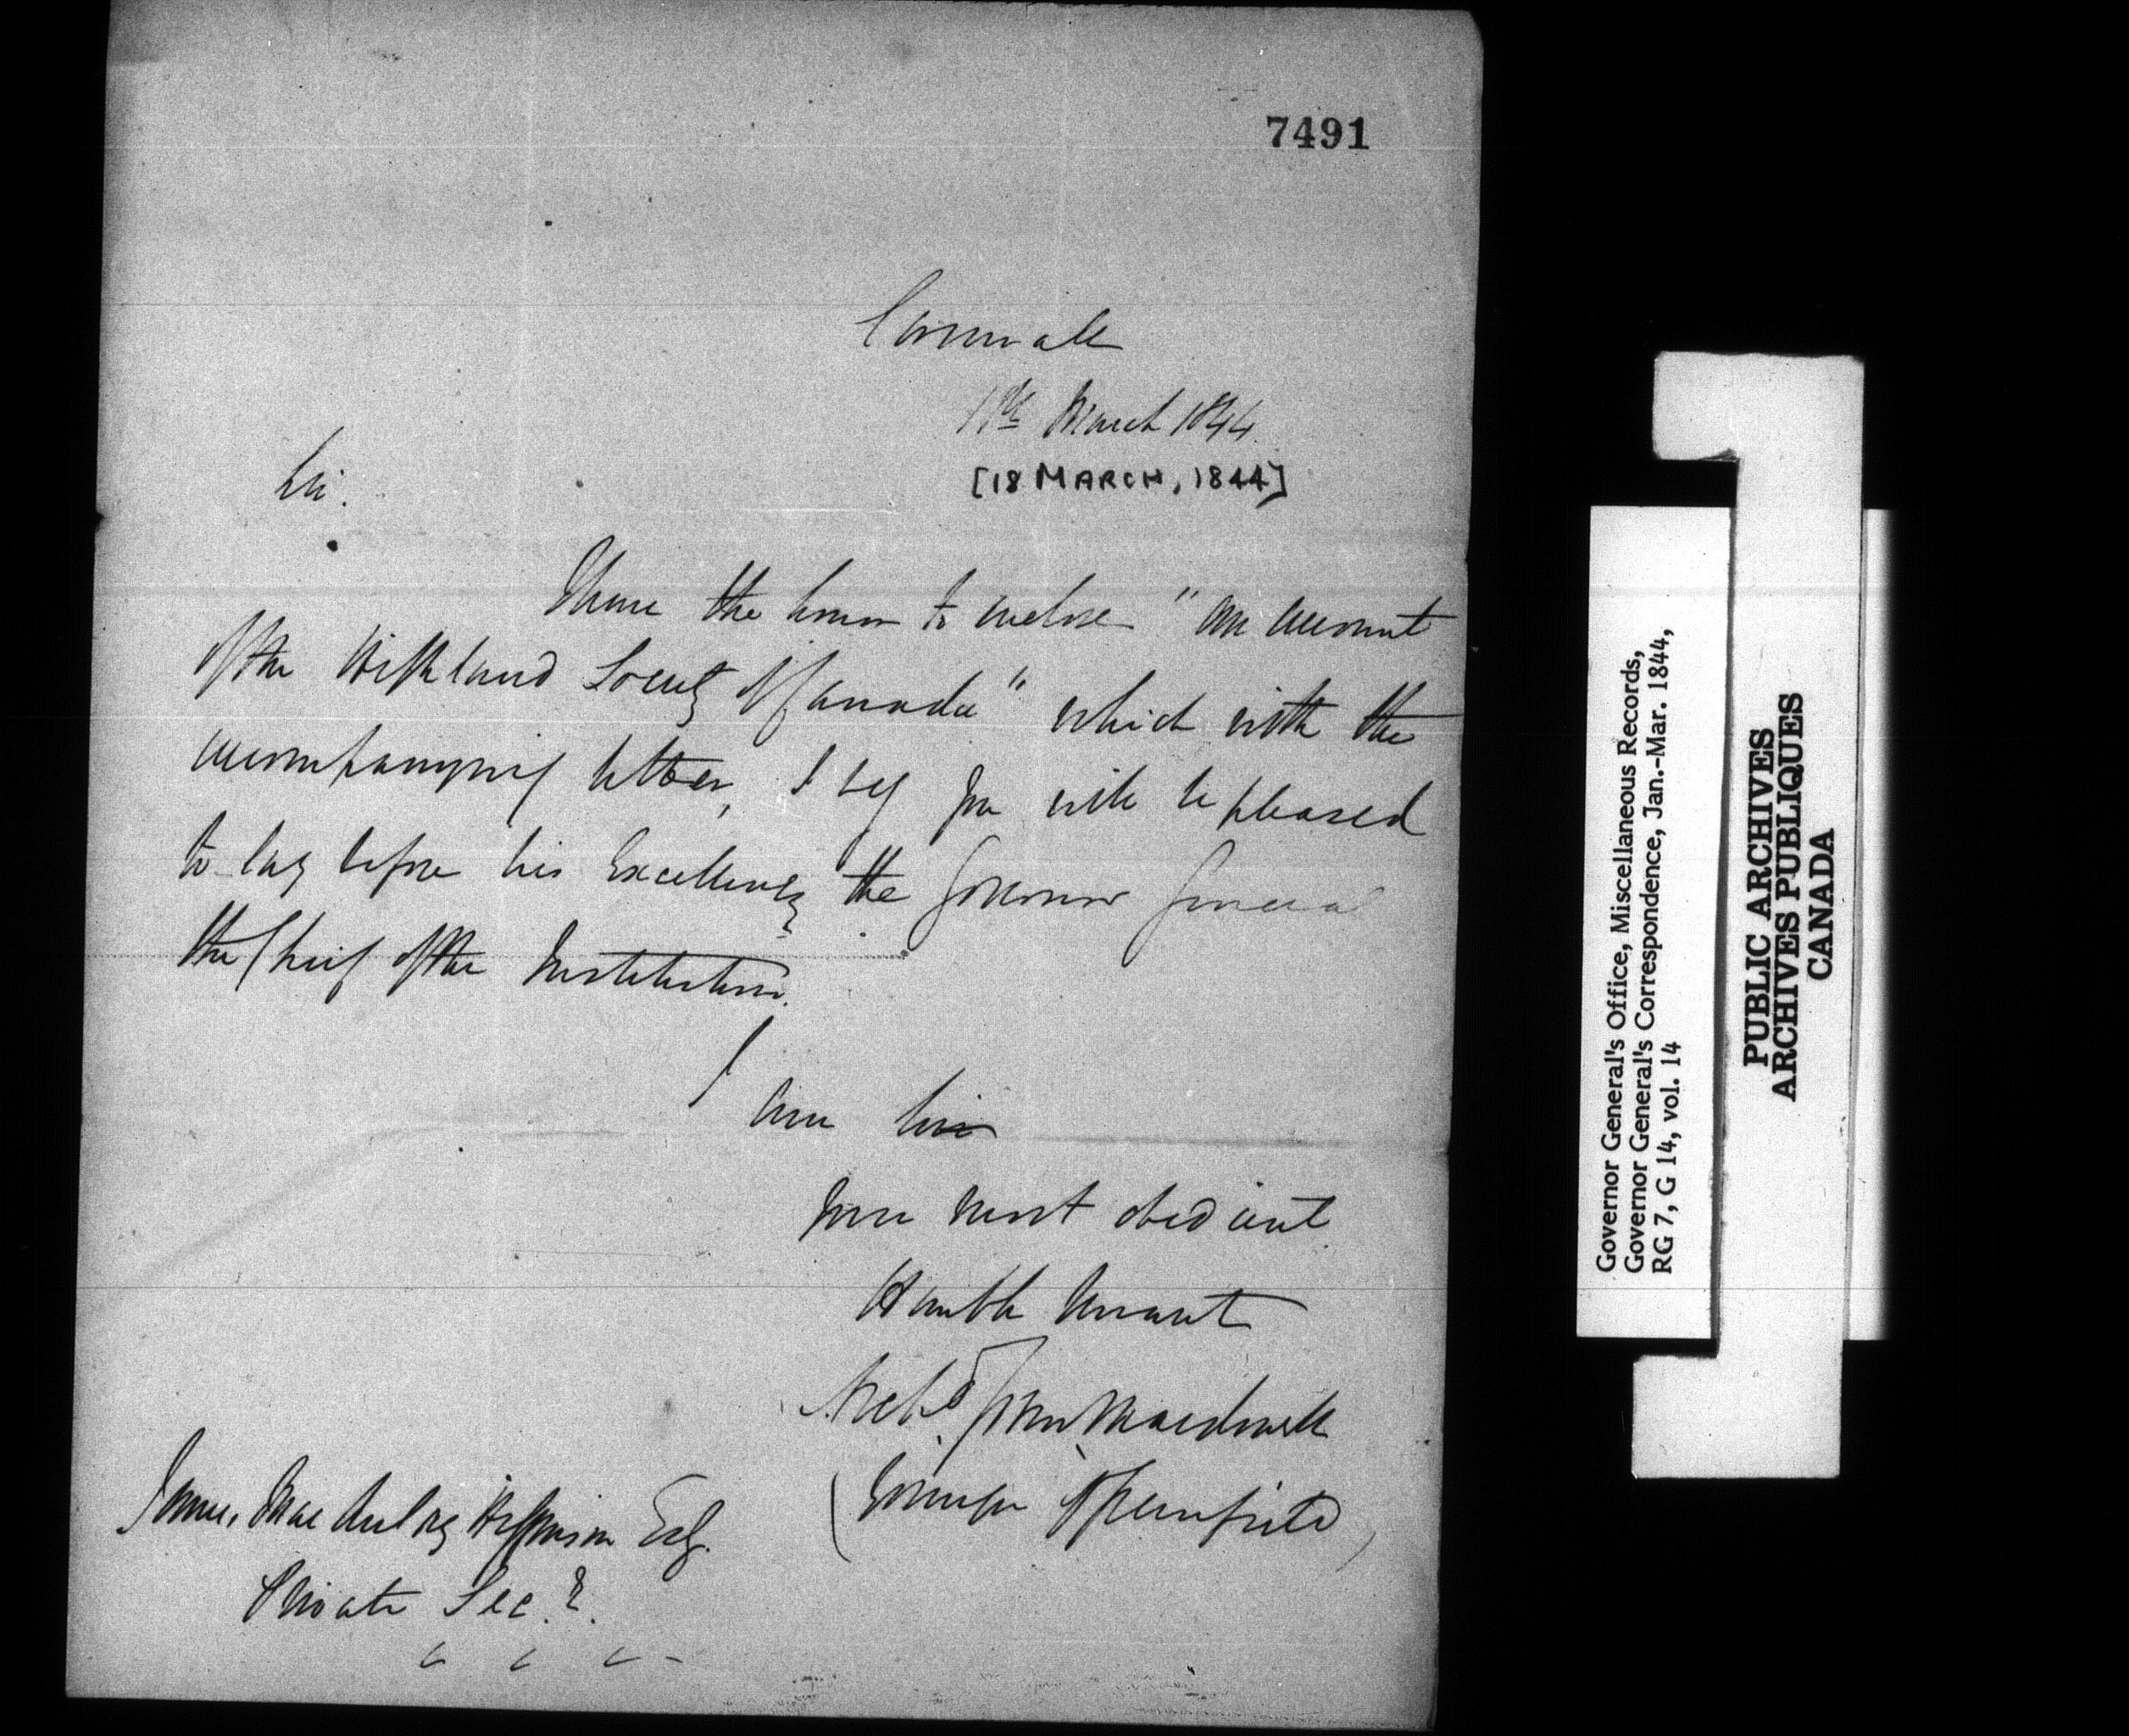 7491
Cornwall
18th March 1844
[18 MARCH, 1844]
Sir.
I have the honor to enclose "an account
of the Highland Society of Canada" which with the
accompanying letter, I beg you will be pleased
to lay before his Excellency the Governor General
the Chief of the Institution.
I
am Sir
your most obedient
Humble Servant
Archd John Macdonell
(Greenfield)
James Macaulay Higginson Esq.
Private Secy.
Governor General's Office, Miscellaneous Records,
Governor General's Correspondence, Jan.-Mar. 1844,
RG 7, G 14, vol. 14
PUBLIC ARCHIVES
ARCHIVES PUBLIQUES
CANADA